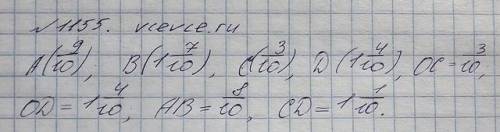 №1155. vcevce.ru
A(9/10), B(1 7/10), C(3/10), D(1 4/10), OC=3/10,
OD=1 4/10, AB=8/10, CD=1 1/10.